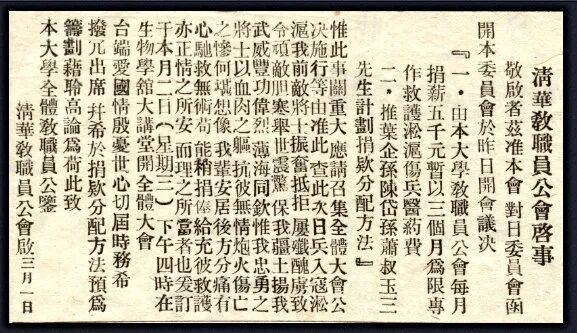 清華教職員公會啓事
敬啟者茲准本會對日委員會函
開本委員會於昨日開會議決
『一．由本大學教職員公會每月
捐薪五千元暫以三個月爲限專
作救護淞滬傷兵醫藥費
二．推葉企孫陳岱孫蕭叔玉三
先生計劃捐欵分配方法』
惟此事關重大應請召集全體大會公
決施行等由准此查此次日兵入寇淞
滬我前敵將士振奮抵拒屢殲醜虜致
令頑敵胆寒舉世震驚保我疆土揚我
武威豐功偉烈薄海同欽惟我忠勇之
將士以血肉之軀抗彼無情炮火傷亡
之慘何堪想像我輩安居後方分痛有
心馳救無術苟能稍捐俸給充彼救護
亦正情之所安而理之所當者也爰訂
于本月二日（星期三）下午四時在
生物學館大講堂開全體大會
台端愛國情殷憂世心切屆時務希
撥冗出席幷希於捐欵分配方法預爲
籌劃藉聆高論爲荷此致
本大學全體教職員公鑒
清華教職員公會啟三月一日